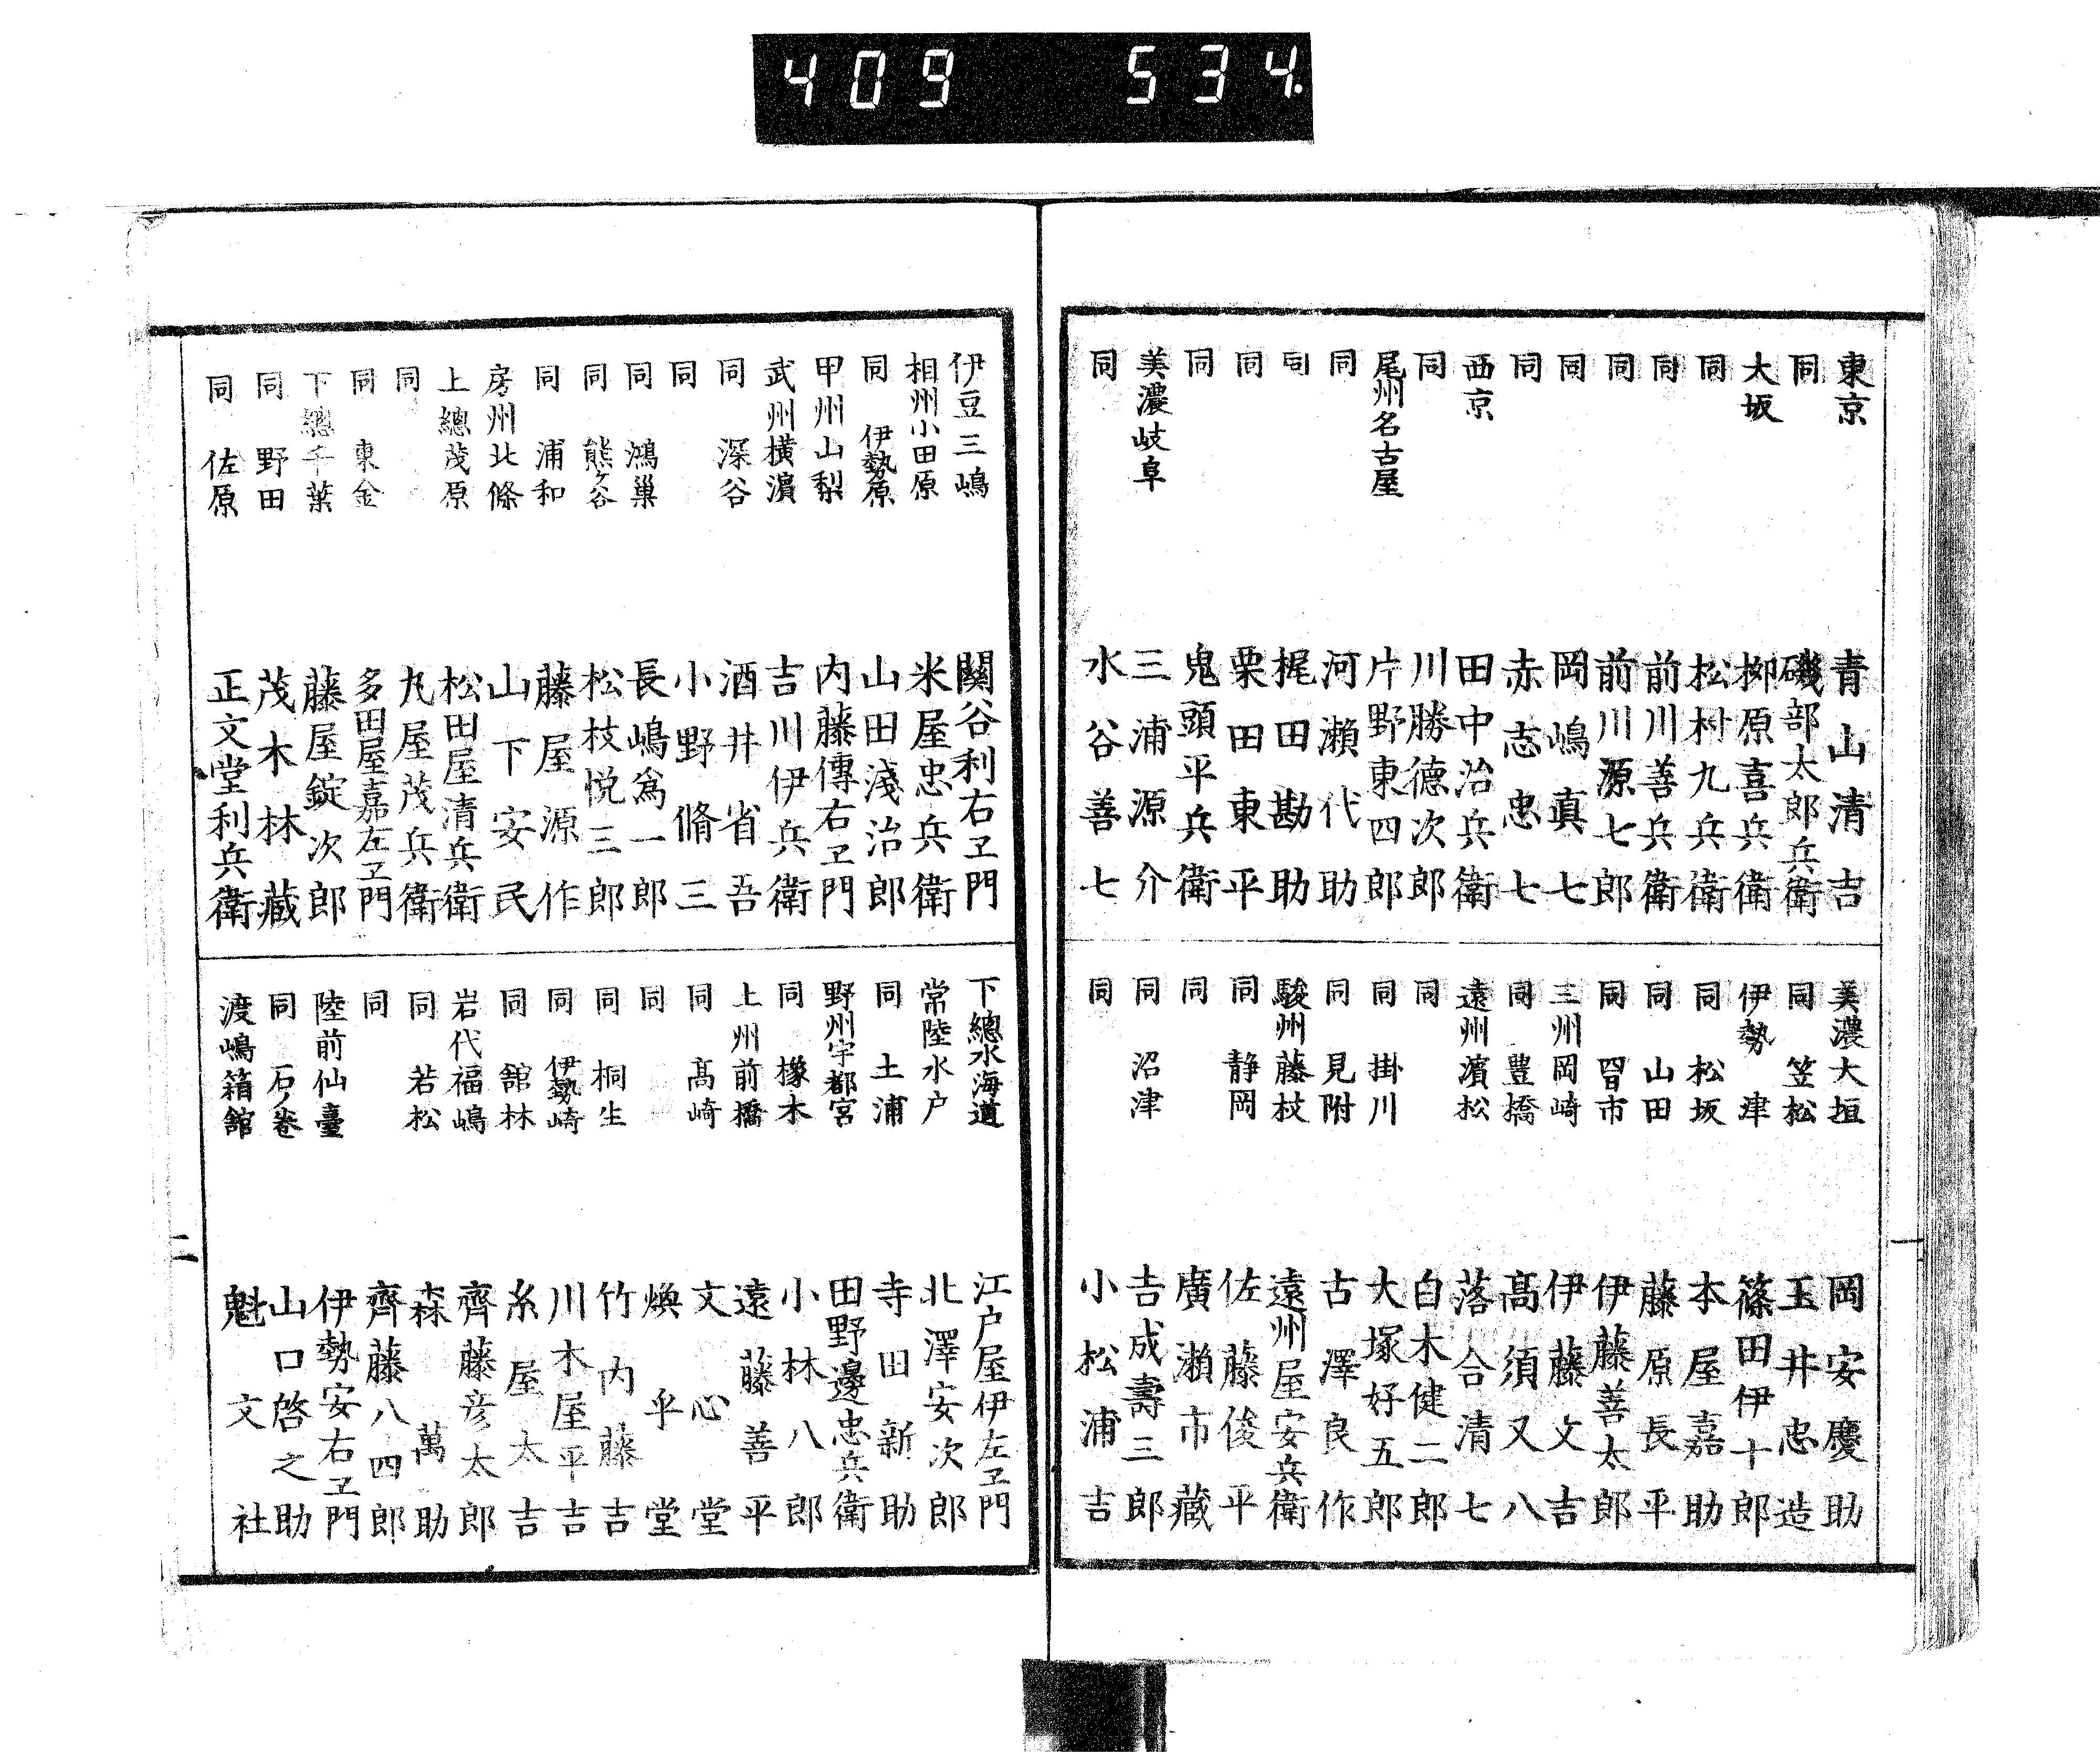 409 534.
東京 青山清吉
同 磯部太郎兵衛
大坂 柳原喜兵衛
同 松村九兵衛
同 前川善兵衛
同 前川源七郎
同 岡嶋眞七
同 赤志忠七
西京 田中治兵衛
同 川勝德次郎
尾州名古屋 片野東四郎
同 河瀬代助
同 梶田勘助
同 栗田東平
同 鬼頭平兵衛
美濃岐阜 三浦源介
同 水谷善七
美濃大垣 岡安慶助
同 笠松 玉井忠造
伊勢 津 篠田伊十郎
同 松坂 本屋嘉助
同 山田 藤原長平
同 四日市 伊藤善太郎
三州岡崎 伊藤文吉
同 豊橋 髙須又八
遠州濱松 落合清七
同 白木健二郎
同 掛川 大塚好五郎
同 見附 古澤良作
駿州藤枝 遠州屋安兵衛
同 静岡 佐藤俊平
同 廣瀬市藏
同 沼津 吉成壽三郎
同 小松浦吉
一
伊豆三嶋 關谷利右ヱ門
相州小田原 米屋忠兵衛
同 伊勢原 山田淺治郎
甲州山梨 内藤傳右ヱ門
武州横濱 吉川伊兵衛
同 深谷 酒井省吾
同 小野脩三
同 鴻巣 長嶋爲一郎
同 熊ケ谷 松枝悦三郎
同 浦和 藤屋源作
房州北條 山下安民
上總茂原 松田屋清兵衛
同 丸屋茂兵衛
同 東金 多田屋嘉左ヱ門
下總千葉 藤屋錠次郎
同 野田 茂木林藏
同 佐原 正文堂利兵衛
下總水海道 江戸屋伊左ヱ門
常陸水戸 北澤安次郎
同 土浦 寺田新助
野州宇都宮 田野邊忠兵衛
同 橡木 小林八郎
上州前橋 遠藤善平
同 髙崎 文心堂
同 煥乎堂
同 桐生 竹内藤吉
同 伊勢崎 川木屋平吉
同 舘林 糸屋太吉
岩代福嶋 齊藤彦太郎
同 若松 森萬助
同 齊藤八四郎
陸前仙臺 伊勢安右ヱ門
同 石ノ巻 山口啓之助
渡嶋箱舘 魁文社
二